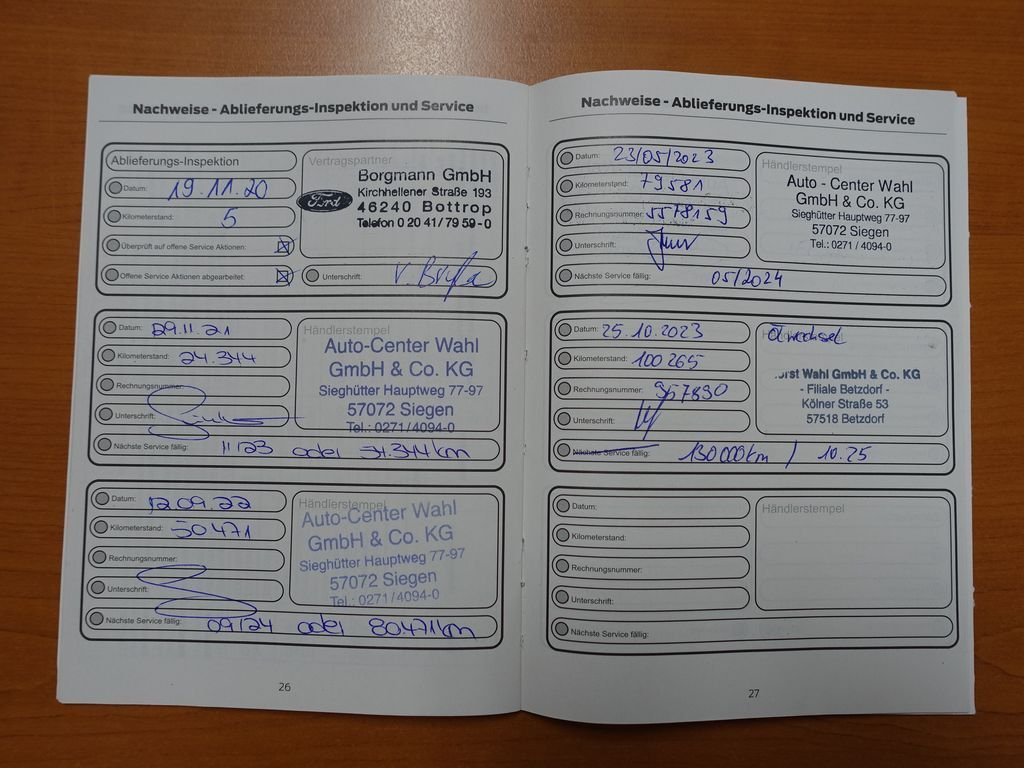 Nachweise - Ablieferungs-Inspektion und Service
Ablieferungs-Inspektion
Datum: 19.11.20
Kilometerstand: 5
Überprüft auf offene Service Aktionen:
Offene Service Aktionen abgearbeitet:
Vertragspartner
Ford
Borgmann GmbH
Kirchhellener Straße 193
46240 Bottrop
Telefon 0 20 41/79 59-0
Unterschrift:
Datum: 29.11.21
Kilometerstand: 24.344
Rechnungsnummer:
Unterschrift:
Händlerstempel
Auto-Center Wahl
GmbH & Co. KG
Sieghütter Hauptweg 77-97
57072 Siegen
Tel.: 0271/4094-0
Nächste Service fällig: 11/23 oder 54.344km
Datum: 12.09.22
Kilometerstand: 50471
Rechnungsnummer:
Unterschrift:
Händlerstempel
Auto-Center Wahl
GmbH & Co. KG
Sieghütter Hauptweg 77-97
57072 Siegen
Tel.: 0271/4094-0
Nächste Service fällig: 09/24 oder 80471km
26
Nachweise - Ablieferungs-Inspektion und Service
Datum: 23/05/2023
Kilometerstand: 79581
Rechnungsnummer: 5578159
Unterschrift:
Händlerstempel
Auto - Center Wahl
GmbH & Co. KG
Sieghütter Hauptweg 77-97
57072 Siegen
Tel.: 0271 / 4094-0
Nächste Service fällig: 05/2024
Datum: 25.10.2023
Kilometerstand: 100265
Rechnungsnummer: 957890
Unterschrift:
Ölwechsel
Wahl GmbH & Co. KG
- Filiale Betzdorf -
Kölner Straße 53
57518 Betzdorf
Nächste Service fällig: 130000km / 10.25
Datum:
Kilometerstand:
Rechnungsnummer:
Unterschrift:
Händlerstempel
Nächste Service fällig:
27